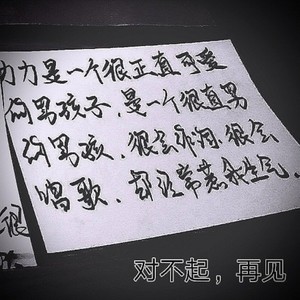 力力是一个很正直可爱
的男孩子，是一个很直男
的男孩，很会作词，很会
唱歌，却经常惹我生气。
很
对不起，再见